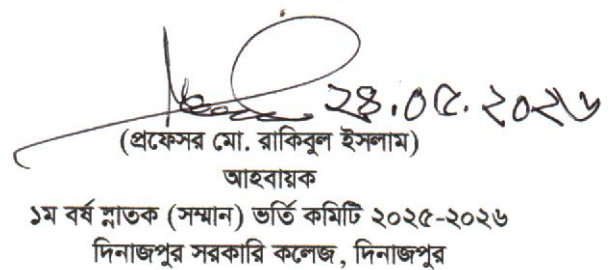 ২৪.০৫.২০২৬
(প্রফেসর মো. রাকিবুল ইসলাম)
আহবায়ক
১ম বর্ষ স্নাতক (সম্মান) ভর্তি কমিটি ২০২৫-২০২৬
দিনাজপুর সরকারি কলেজ, দিনাজপুর